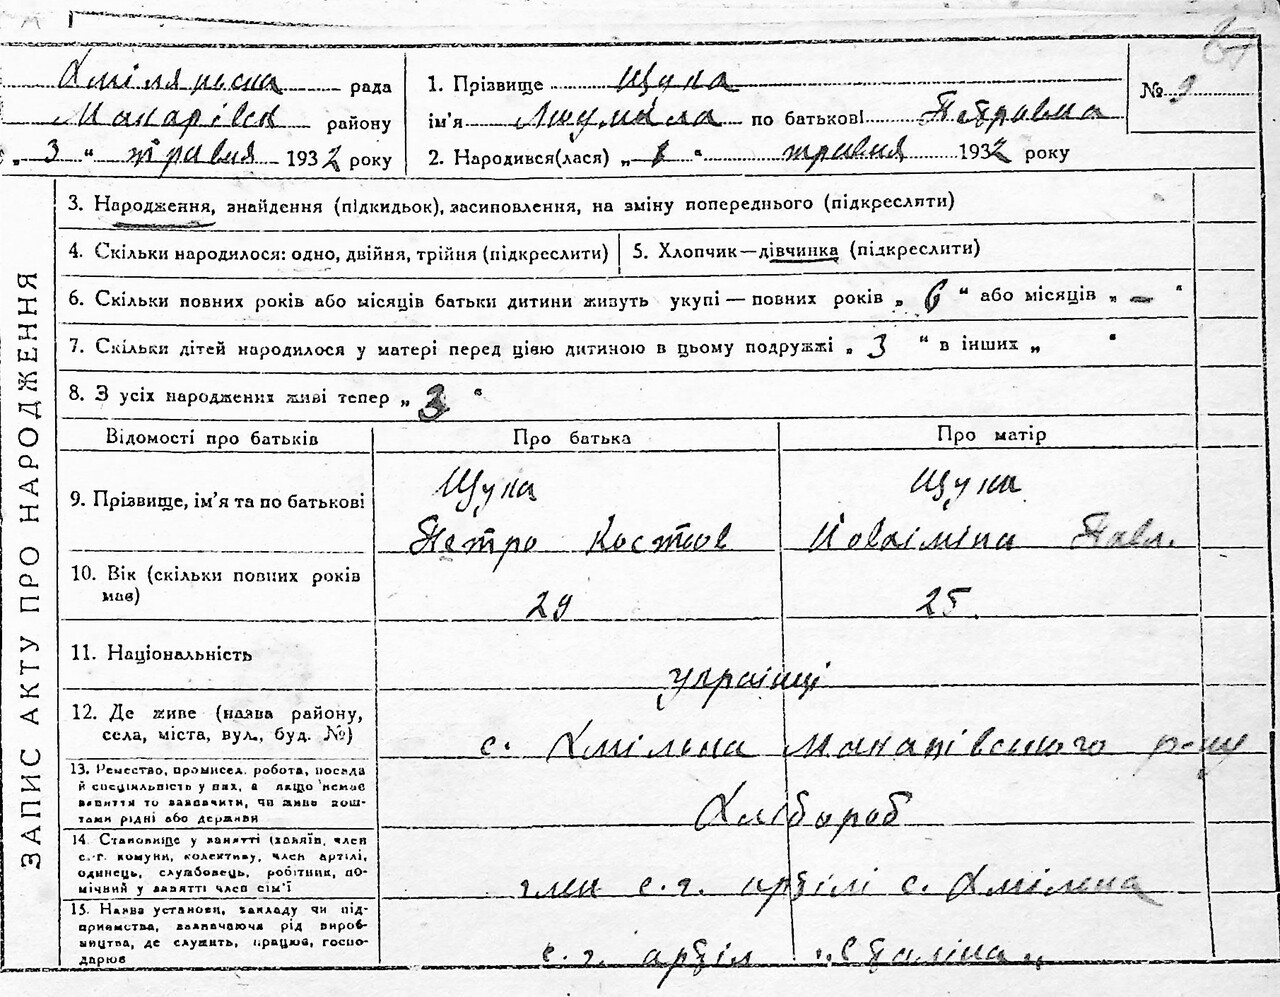 Хмілянська рада
Макарівськ району
„ 3 “ травня 1932 року
1. Прізвище Щука
ім'я по батькові Петровна
2. Народився(лася) „ “ травня 1932 року
№ 9
ЗАПИС АКТУ ПРО НАРОДЖЕННЯ
3. Народження, знайдення (підкидьок), засиповлення, на зміну попереднього (підкреслити)
4. Скільки народилося: одно, двійня, трійня (підкреслити)
5. Хлопчик—дівчинка (підкреслити)
6. Скільки повних років або місяців батьки дитини живуть укупі — повних років „ 6 “ або місяців „ — “
7. Скільки дітей народилося у матері перед цією дитиною в цьому подружжі „ 3 “ в інших „ “
8. З усіх народжених живі тепер „ 3 “
Відомості про батьків
Про батька
Про матір
9. Прізвище, ім'я та по батькові
Щука
Петро Костов
Щука
Павл.
10. Вік (скільки повних років
має)
29
25
11. Національність
українці
12. Де живе (назва району,
села, міста, вул., буд. №)
с. Хмільна Макарівського р-ну
13. Ремество, промисел, робота, посада
й спеціяльність у них, а якщо немає
заняття то зазначити, чи живе кош-
тами рідні або держави
Хлібороб
14. Становище у занятті (хазяїн, член
с.-г. комуни, колективу, член артілі,
одинець, службовець, робітник, по-
мічний у занятті член сім'ї
член с.г. артілі с. Хмільна
15. Назва установи, закладу чи під-
приємства, зазначаючи рід вироб-
ництва, де служить, працює, госпо-
дарює
с.г. артіл „Сталіна„